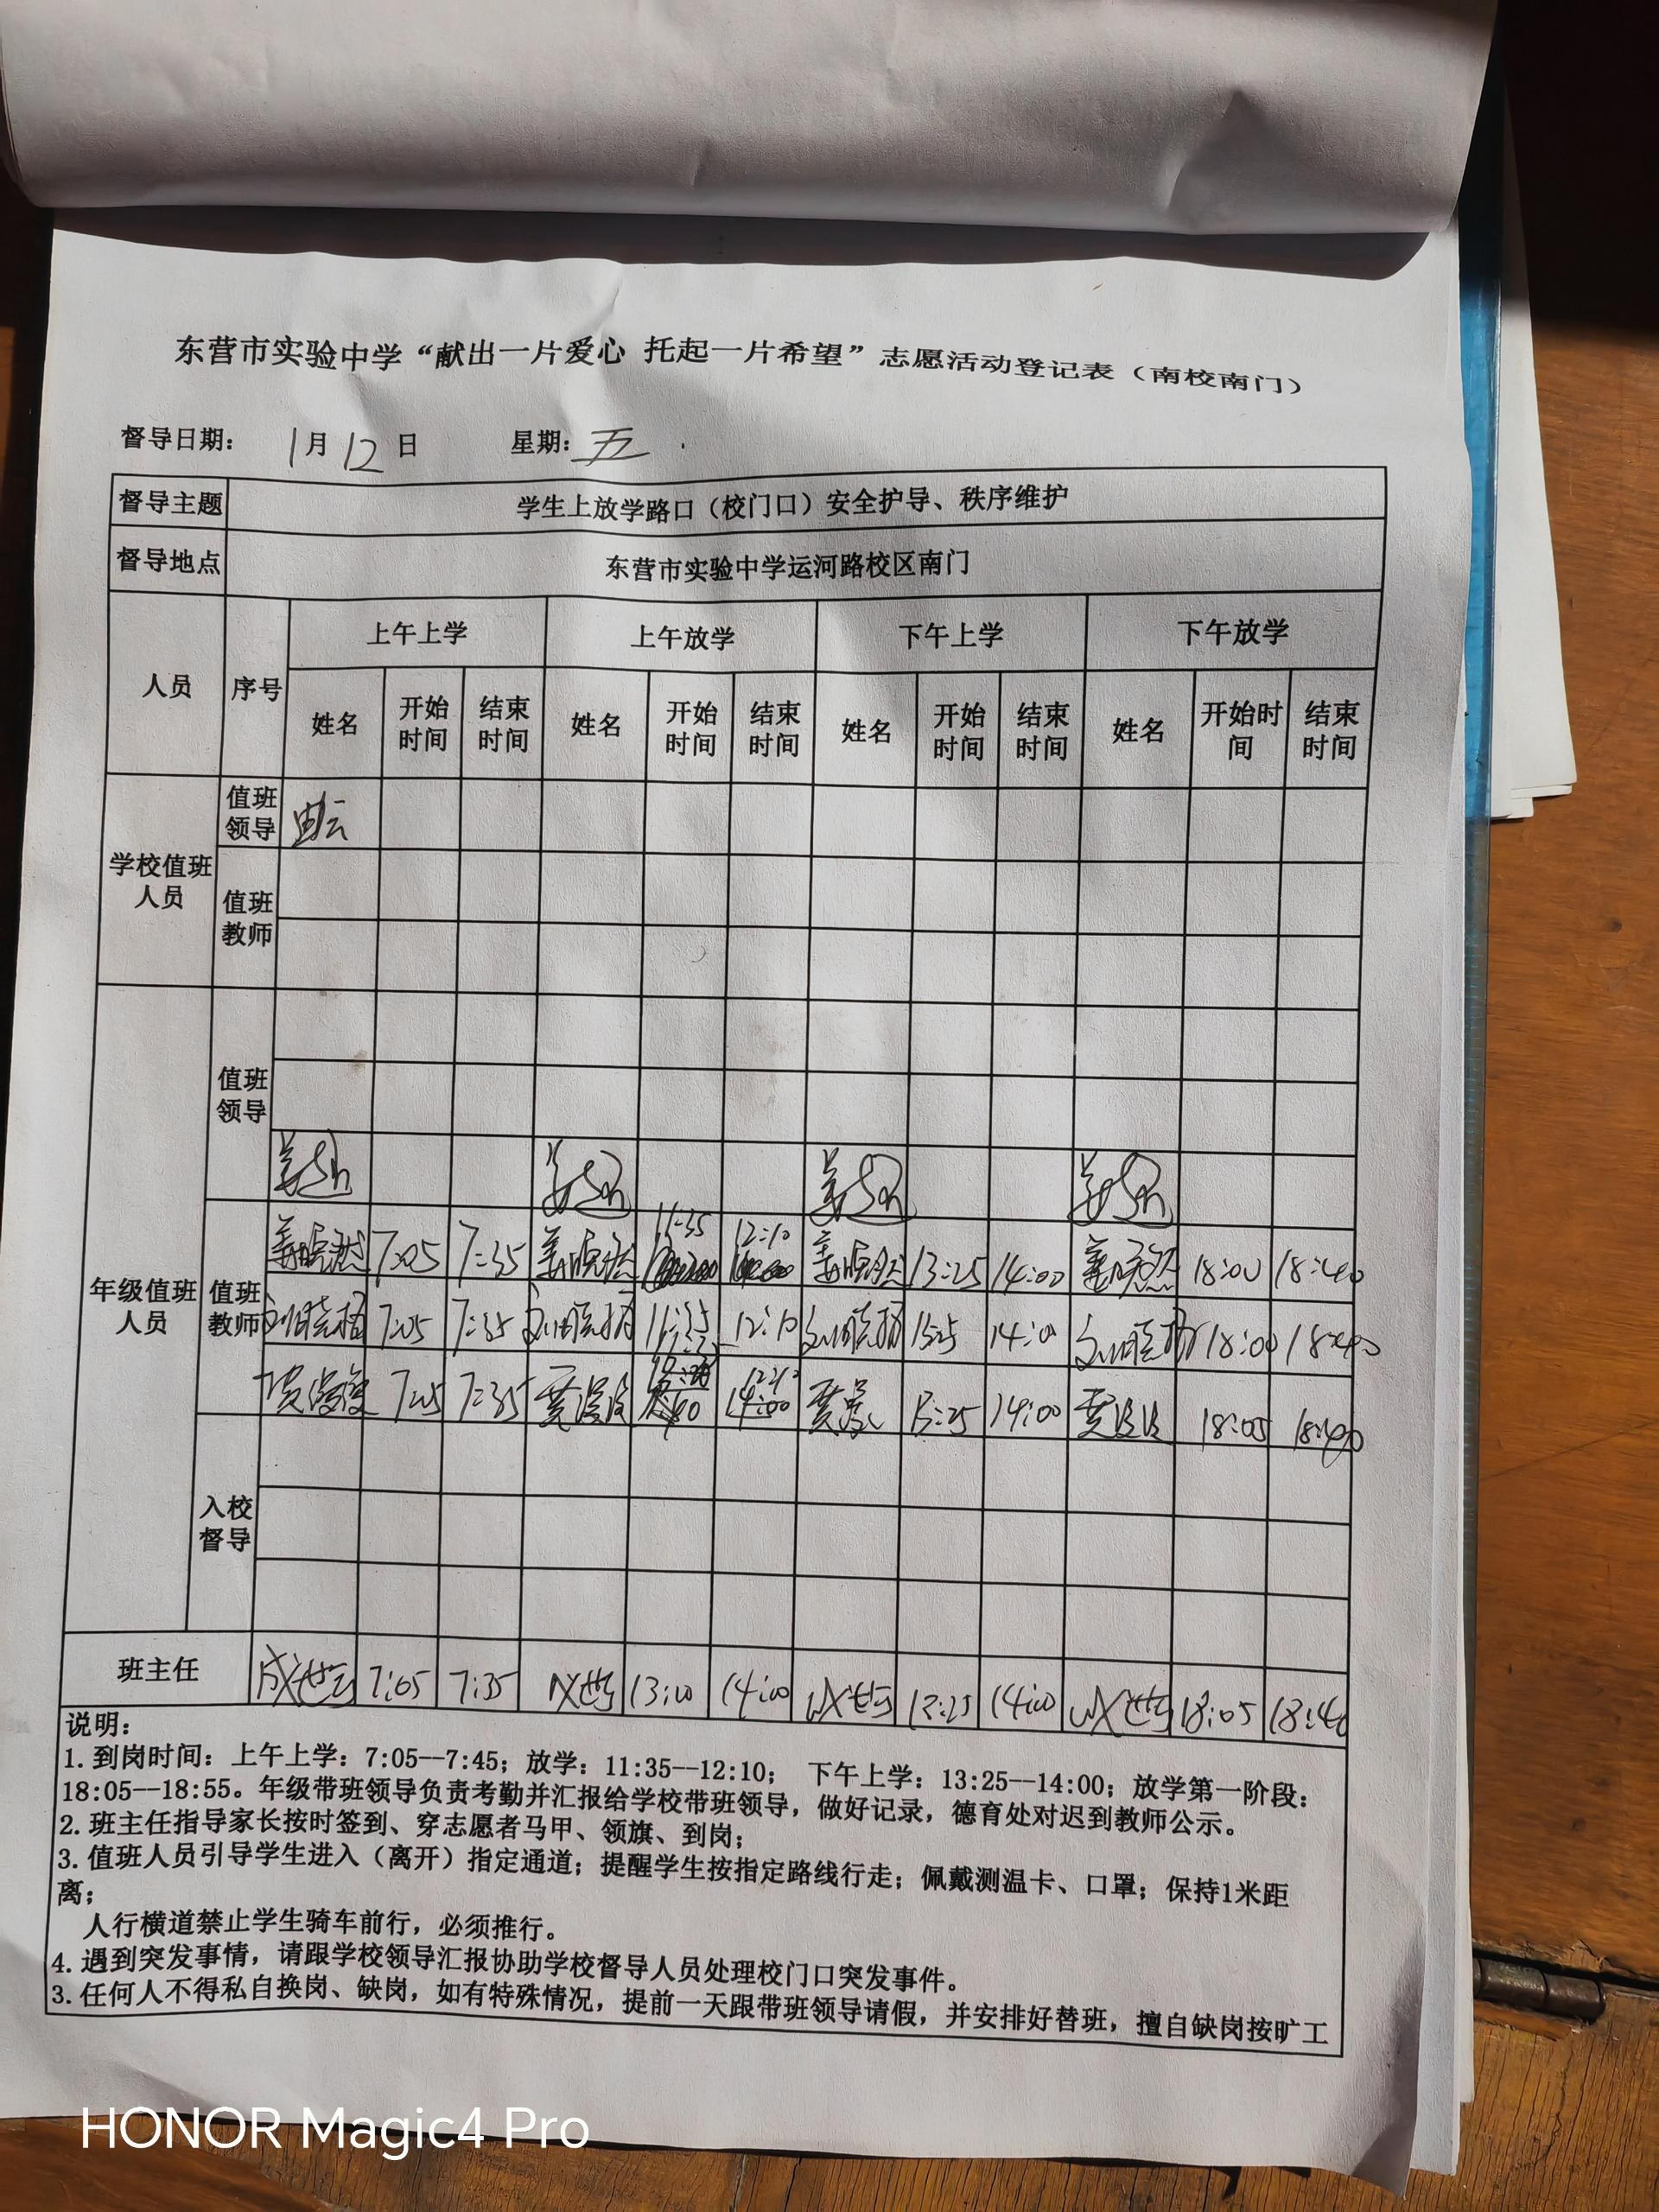 东营市实验中学“献出一片爱心 托起一片希望”志愿活动登记表（南校南门）
督导日期： 1月12日 星期：五
督导主题 学生上放学路口（校门口）安全护导、秩序维护
督导地点 东营市实验中学运河路校区南门
人员 序号 上午上学 上午放学 下午上学 下午放学
姓名 开始时间 结束时间 姓名 开始时间 结束时间 姓名 开始时间 结束时间 姓名 开始时间 结束时间
学校值班人员 值班领导
值班教师
年级值班人员 值班领导
值班教师 7:05 7:35 11:35 12:10 13:25 14:00 18:00 18:40
7:05 7:35 11:35 12:10 14:00 18:00 18:40
7:05 7:35 12:10 14:00 13:25 14:00 18:05 18:40
入校督导
班主任 7:05 7:35 13:00 14:00 14:00 18:05 18:40
说明：
1.到岗时间：上午上学：7:05--7:45；放学：11:35--12:10； 下午上学：13:25--14:00；放学第一阶段：
18:05--18:55。年级带班领导负责考勤并汇报给学校带班领导，做好记录，德育处对迟到教师公示。
2.班主任指导家长按时签到、穿志愿者马甲、领旗、到岗；
3.值班人员引导学生进入（离开）指定通道；提醒学生按指定路线行走；佩戴测温卡、口罩；保持1米距
离；
人行横道禁止学生骑车前行，必须推行。
4.遇到突发事情，请跟学校领导汇报协助学校督导人员处理校门口突发事件。
3.任何人不得私自换岗、缺岗，如有特殊情况，提前一天跟带班领导请假，并安排好替班，擅自缺岗按旷工
HONOR Magic4 Pro